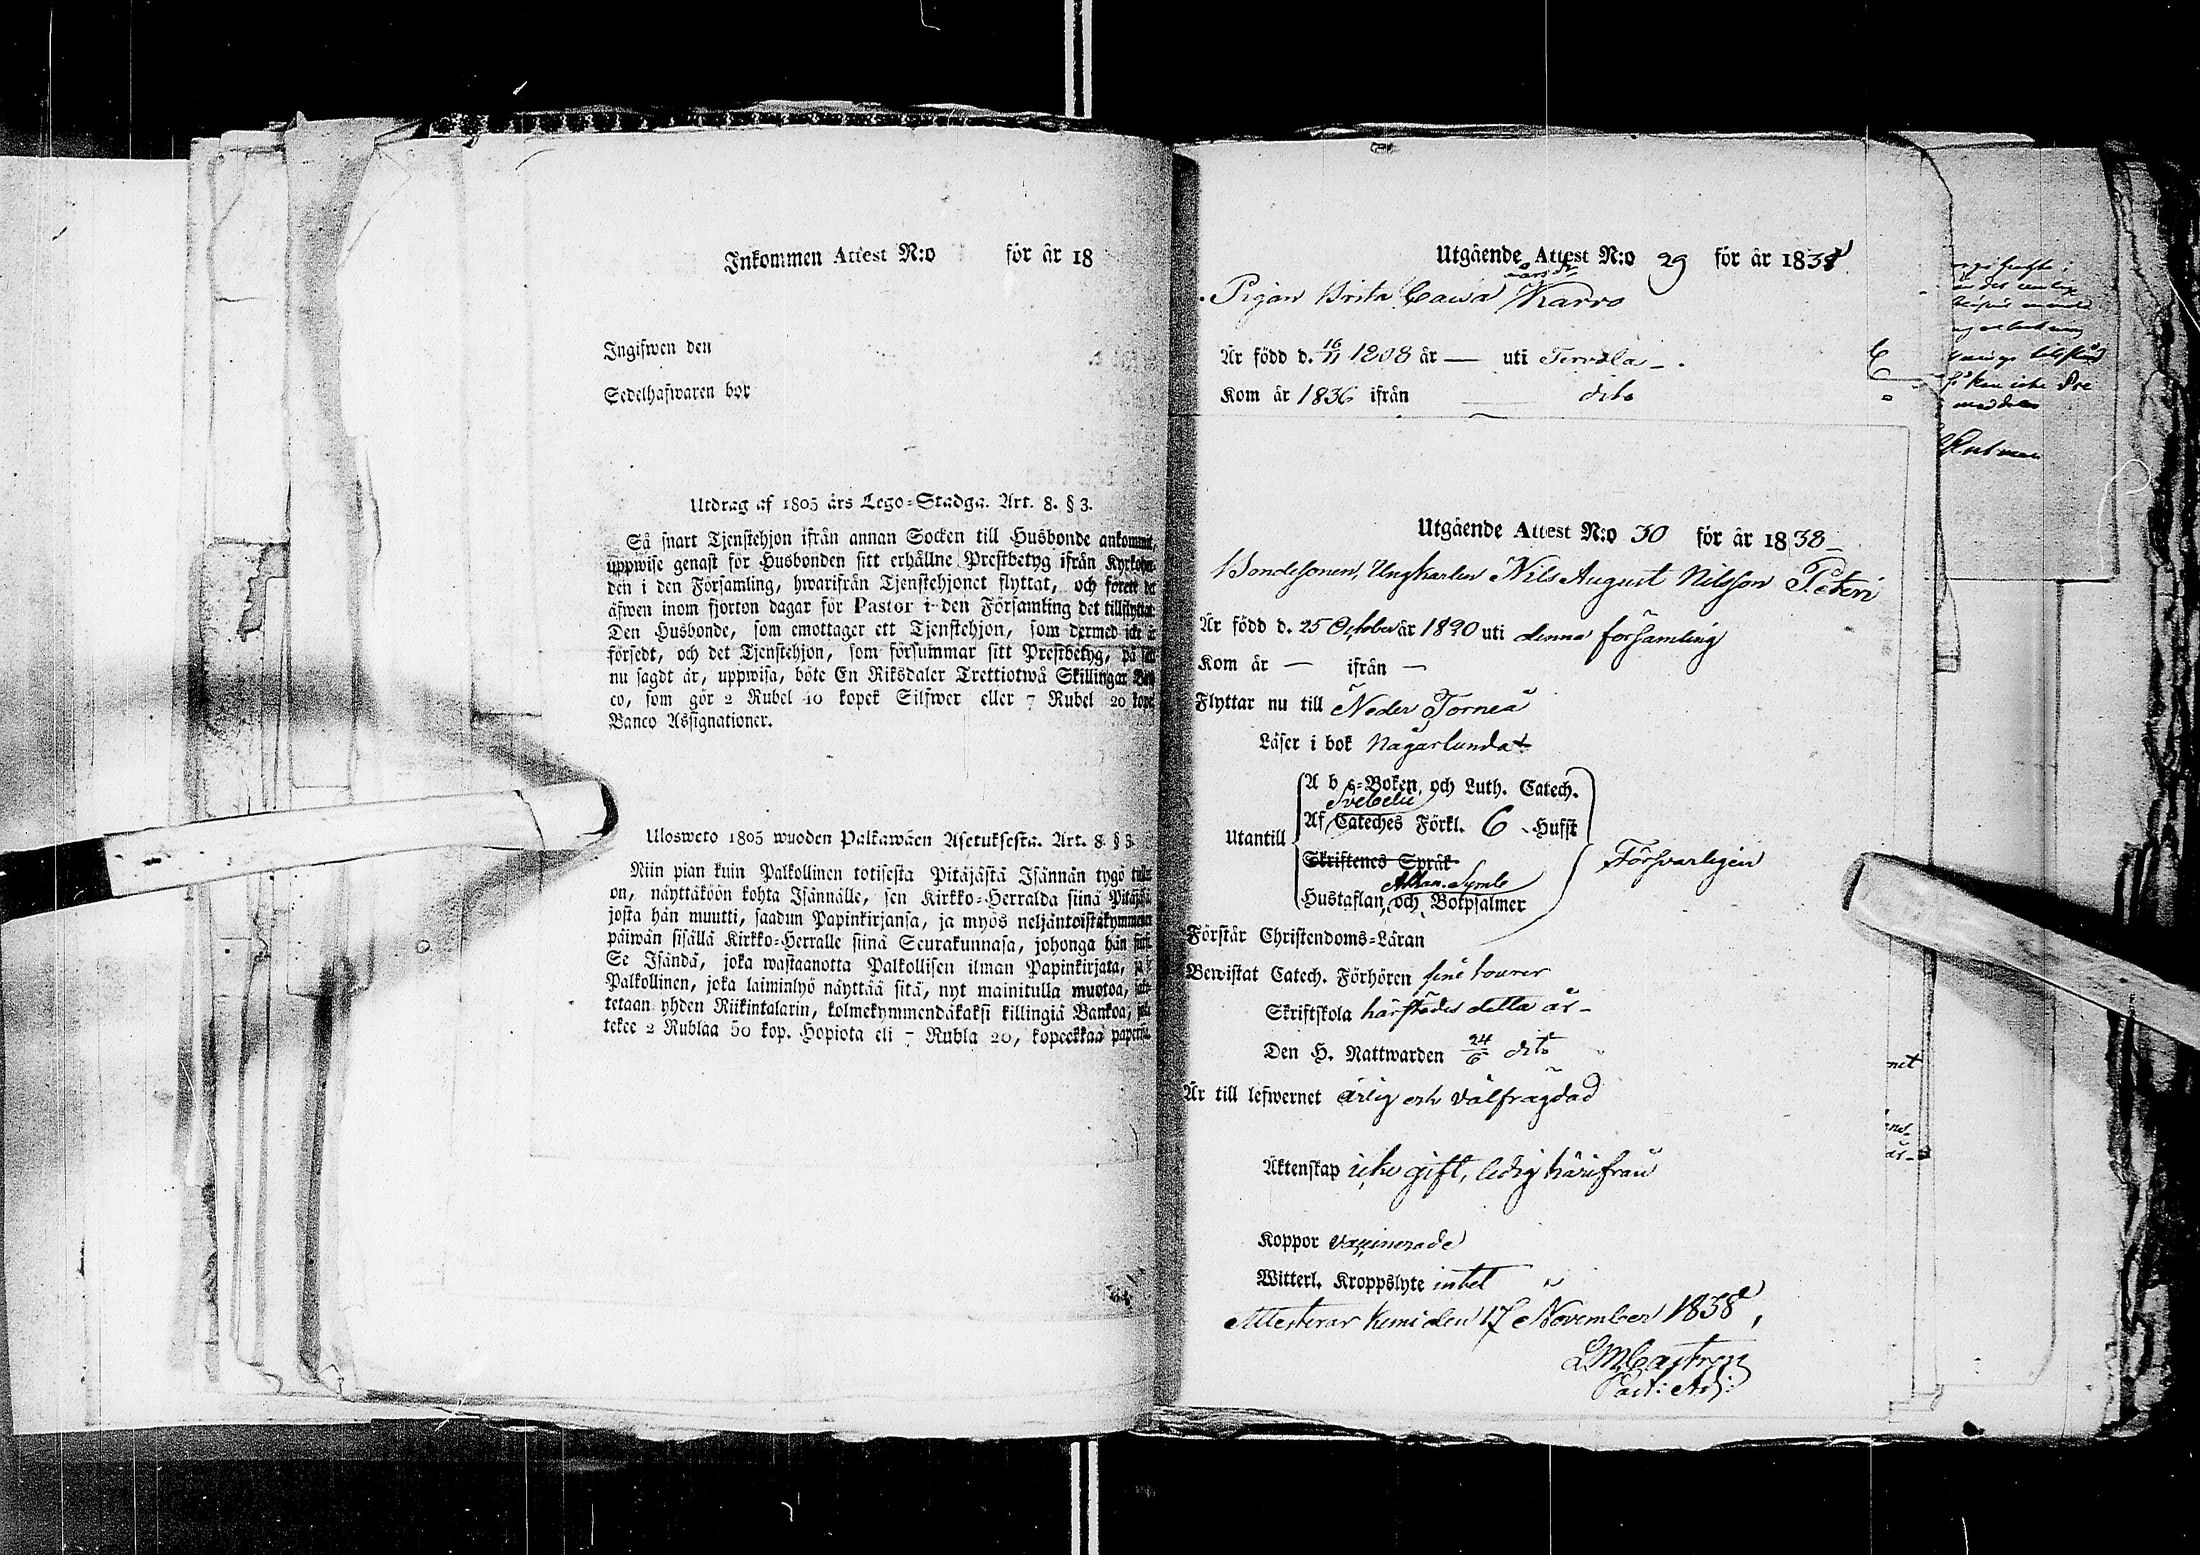 Inkommen Attest N:o för år 18
Ingifwen den
Sedelhafwaren bor
Utdrag af 1805 års Lego=Stadga. Art. 8. § 3.
Så snart Tjenstehjon ifrån annan Socken till Husbonde ankommit,
uppwise genast för Husbonden sitt erhållne Prestbetyg ifrån
den i den Församling, hwarifrån Tjenstehjonet flyttat, och
äfwen inom fjorton dagar för Pastor i den Församling det
Den Husbonde, som emottager ett Tjenstehjon, som dermed icke
försedt, och det Tjenstehjon, som försummar sitt Prestbetyg, på
nu sagdt är, uppwisa, böte En Riksdaler Trettiotwå Skillingar
co, som gör 2 Rubel 40 kopek Silfwer eller 7 Rubel 20
Banco Assignationer.
Ulosweto 1805 wuoden Palkawäen Asetuksesta. Art. 8. § 3.
Niin pian kuin Palkollinen totisesta Pitäjästä Isännän tygö
on, näyttäköön kohta Isännälle, sen Kirkko=Herralda siinä
josta hän muutti, saadun Papinkirjansa, ja myös neljäntoistakymmenen
päiwän sisällä Kirkko=Herralle siinä Seurakunnasa, johonga hän
Se Isändä, joka wastaanotta Palkollisen ilman Papinkirjata,
Palkollinen, joka laiminlyö näyttää sitä, nyt mainitulla muotoa,
tetaan yhden Riikintalarin, kolmekymmendäkaksi killingiä Bankoa,
tekee 2 Rublaa 50 kop. Hopiota eli 7 Rubla 20, kopeekkaa
Utgående Attest N:o 29 för år 1838
Pigan Brita Caisa Karro
Är född d. 16/11 1808 år — uti Tervola
Kom år 1836 ifrån — dito
Utgående Attest N:o 30 för år 1838
Bondesonen, Ungkarlen Nils August Nilsson Peteri
Är född d. 25 October år 1820 uti denna församling
Kom år — ifrån —
Flyttar nu till Neder Torneå
Läser i bok någorlunda
A b c=Boken, och Luth. Catech.
Svebelii
Af Cateches Förkl. 6 Hufst
Utantill
Skriftenes Språk
Försvarligen
Athan. Symb
Hustaflan, och Botpsalmer
Förstår Christendoms=Läran
Bewistat Catech. Förhören sine tourer
Skriftskola härstädes detta år
Den H. Nattwarden 24/6 dito
Är till lefwernet ärlig och välfrägdad
Äktenskap icke gift, ledig härifrån
Koppor vaccinerade
Witterl. Kroppslyte intet
Attesterar Kemi den 17 November 1838,
LM Castren
Past: Adj: